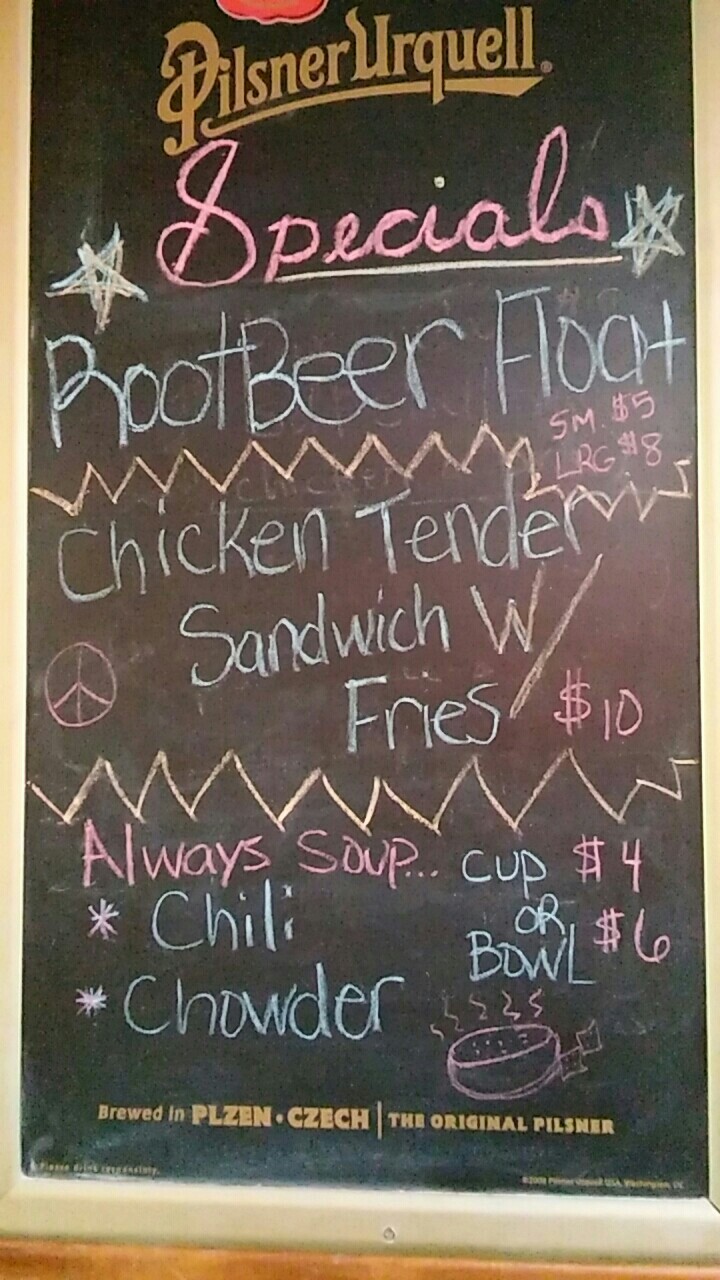 Pilsner Urquell®
Specials
RootBeer Float
SM. $5
LRG $8
Chicken Tender
Sandwich W/
Fries $10
Always Soup... Cup $4
* Chili OR $6
BOWL
* Chowder
Brewed in PLZEN • CZECH | THE ORIGINAL PILSNER
Please drink responsibly.